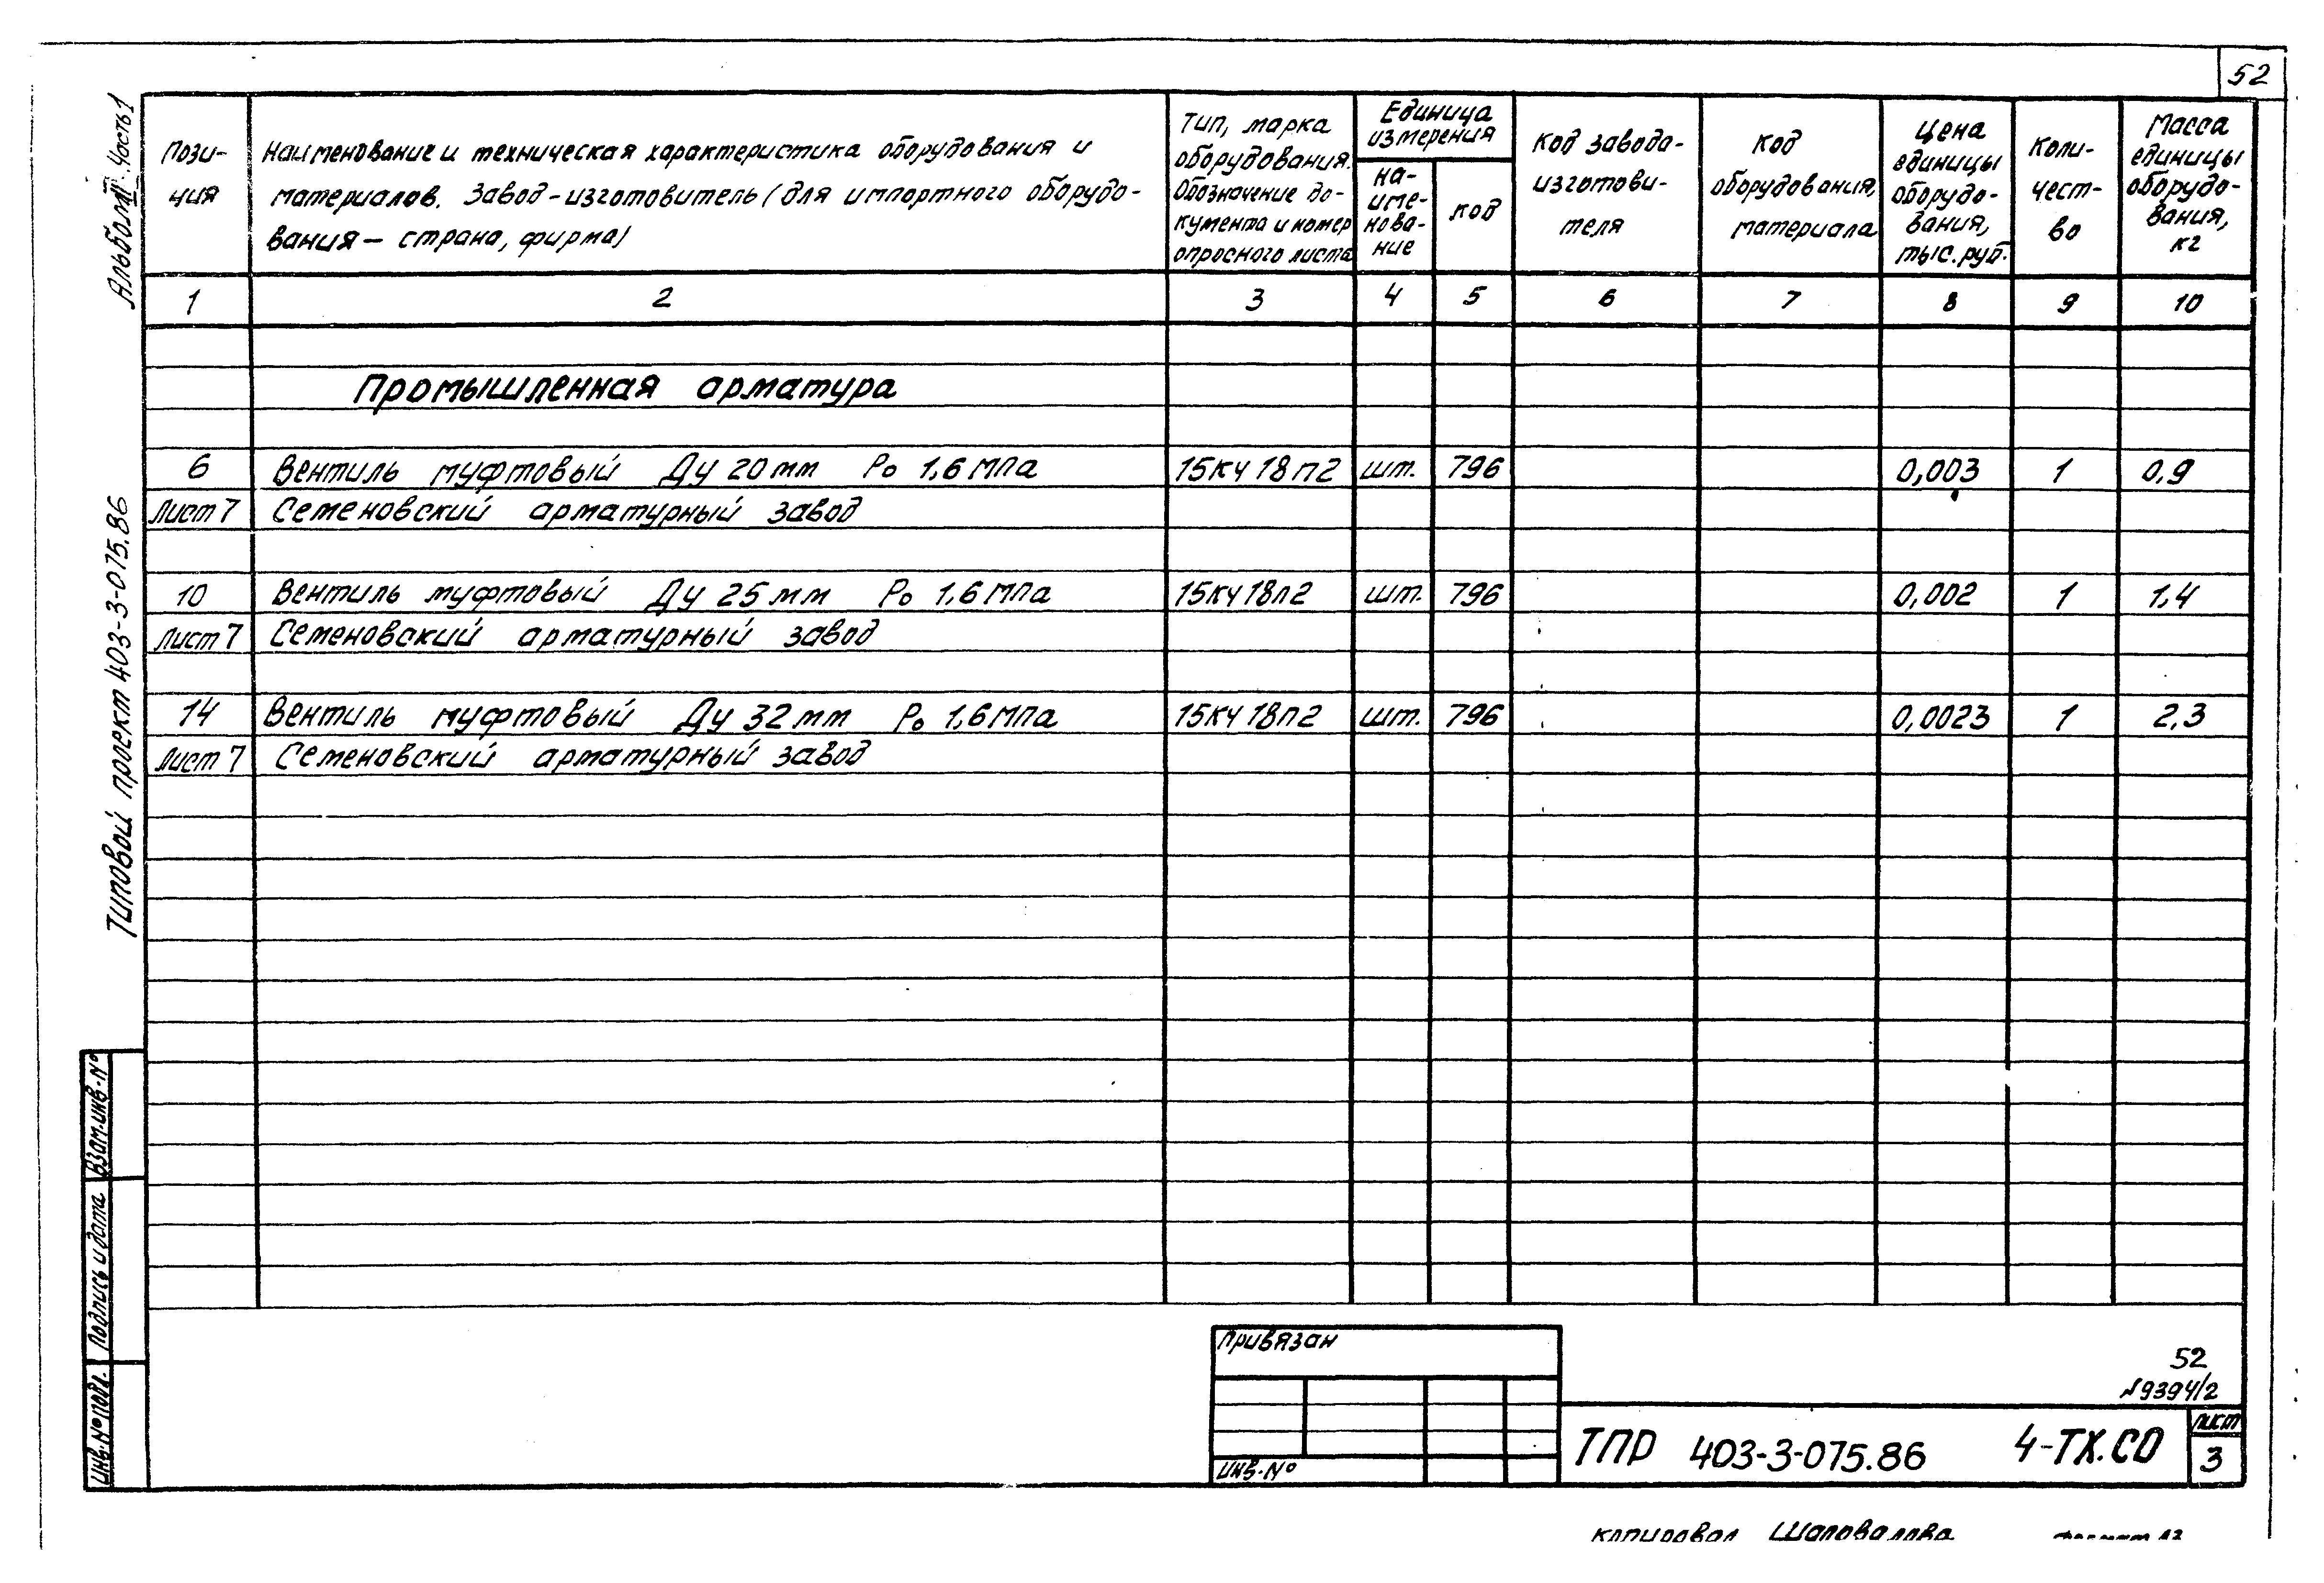 52
Альбом III. Часть 1
Типовой проект 403-3-075.86
Пози-
ция
Наименование и техническая характеристика оборудования и
материалов. Завод-изготовитель (для импортного оборудо-
вания - страна, фирма)
Тип, марка
оборудования.
Обозначение до-
кумента и номер
опросного листа
Единица
измерения
на-
име-
нова-
ние
код
Код завода-
изготови-
теля
Код
оборудования,
материала
Цена
единицы
оборудо-
вания,
тыс.руб.
Коли-
чест-
во
Масса
единицы
оборудо-
вания,
кг
1 2 3 4 5 6 7 8 9 10
Промышленная арматура
6 Вентиль муфтовый Ду 20 мм Ро 1,6 МПа 15кч18п2 шт. 796 0,003 1 0,9
Лист 7 Семеновский арматурный завод
10 Вентиль муфтовый Ду 25 мм Ро 1,6 МПа 15кч18п2 шт. 796 0,002 1 1,4
Лист 7 Семеновский арматурный завод
14 Вентиль муфтовый Ду 32 мм Ро 1,6 МПа 15кч18п2 шт. 796 0,0023 1 2,3
Лист 7 Семеновский арматурный завод
Взам.инв.№
Подпись и дата
Инв.№ подл.
Привязан
Инв.№
52
19394/2
ТПР 403-3-075.86 4-ТХ.СО
Лист
3
Копировал Шаповалова Формат А3